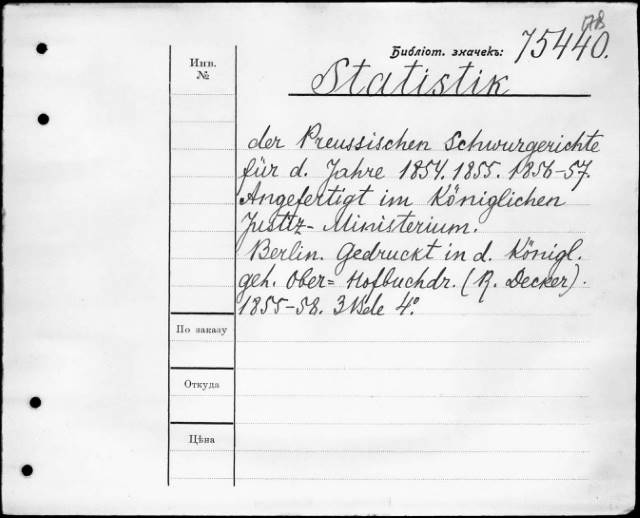 АВ
Библіот. значекъ: 75440.
Инв.
№
Statistik
der Preussischen Schwurgerichte
für d. Jahre 1854. 1855. 1856-57.
Angefertigt im Königlichen
Justiz-Ministerium.
Berlin. Gedruckt in d. Königl.
geh. Ober= Hofbuchdr. (R. Decker).
1855-58. 3 Bde 4°.
По заказу
Откуда
Цѣна